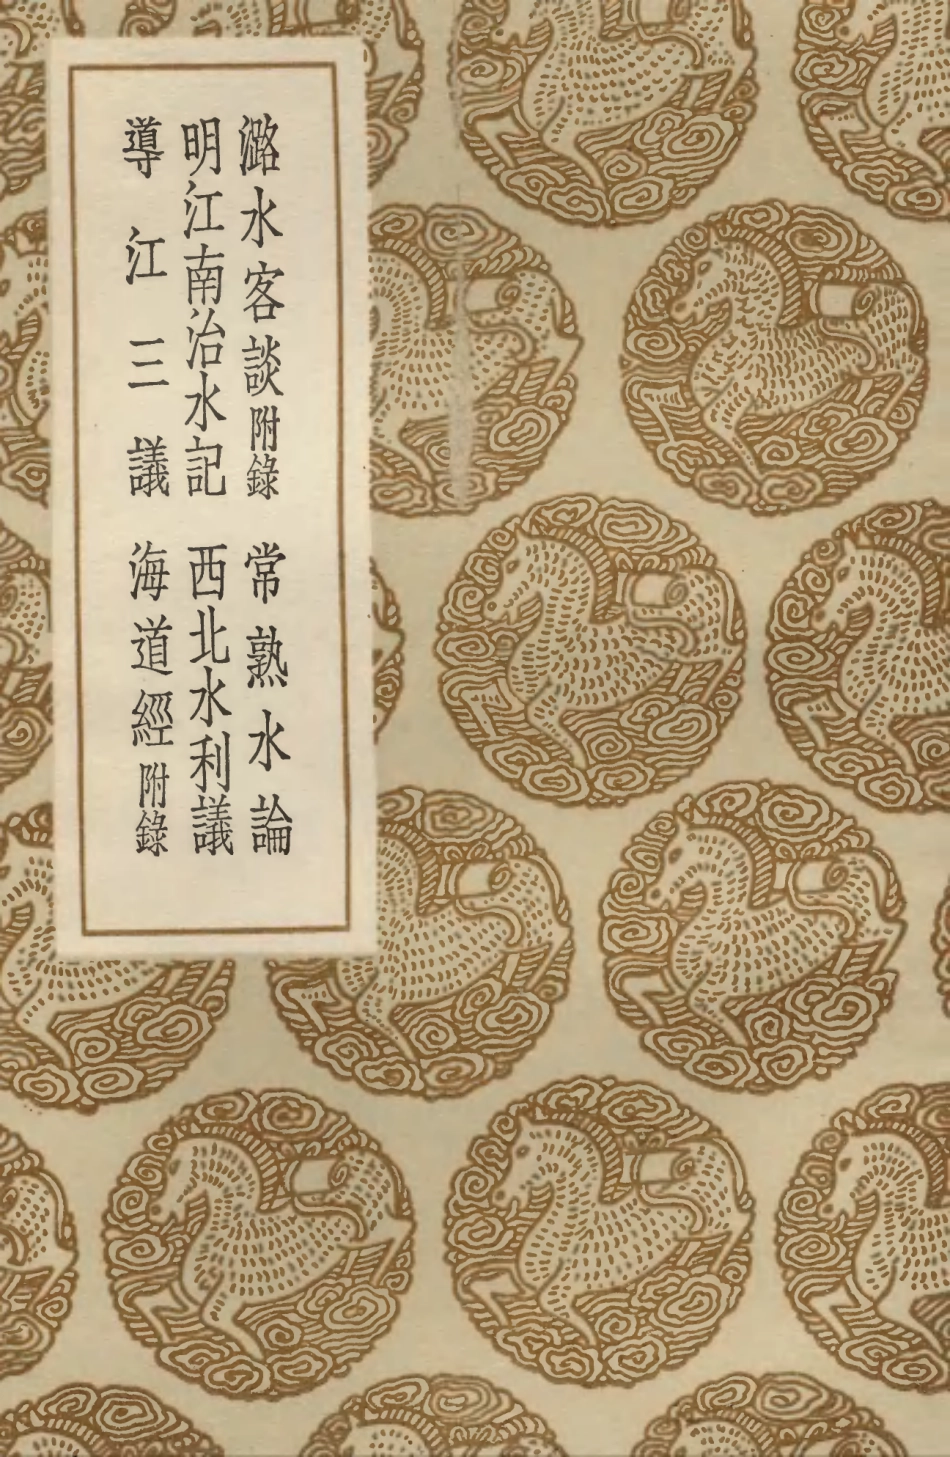 潞水客談附錄　常熟水論
明江南治水記　西北水利議
導江三議　海道經附錄